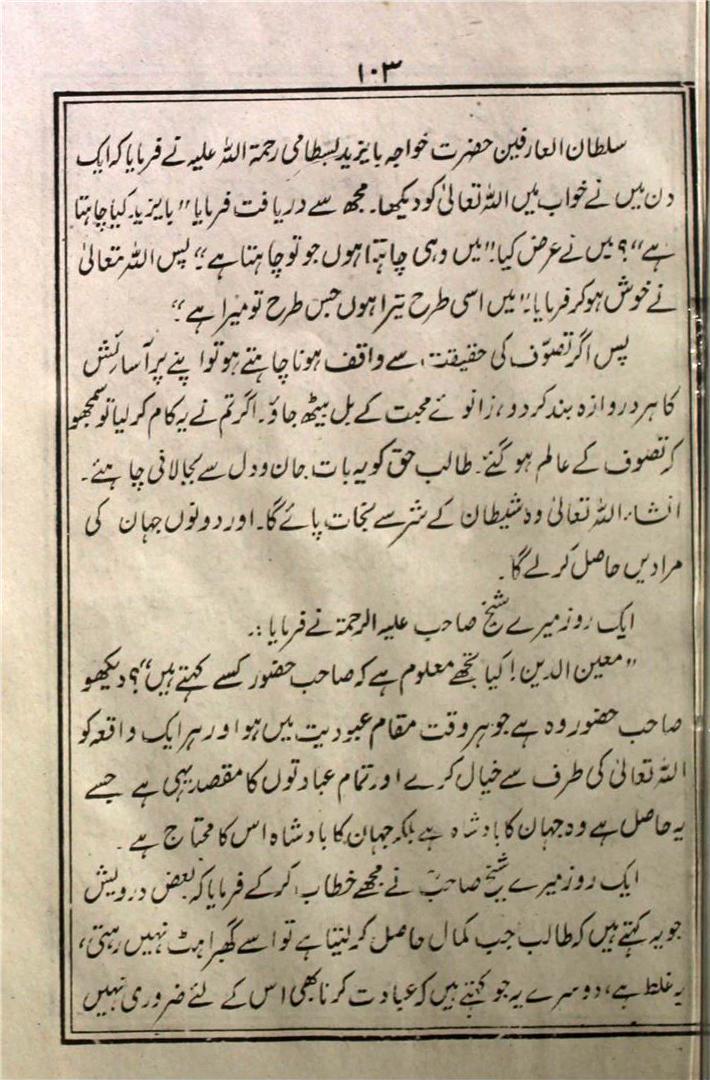 ۱۰۳
سلطان العارفین حضرت خواجہ بایزید بسطامی رحمۃ اللہ علیہ نے فرمایا کہ ایک
دن میں نے خواب میں اللہ تعالیٰ کو دیکھا۔ مجھ سے دریافت فرمایا "بایزید کیا چاہتا
ہے"؟ میں نے عرض کیا۔ "میں وہی چاہتا ہوں جو تو چاہتا ہے"۔ پس اللہ تعالیٰ
نے خوش ہو کر فرمایا۔ "میں اسی طرح تیرا ہوں جس طرح تو میرا ہے"۔
پس اگر تصوّف کی حقیقت سے واقف ہونا چاہتے ہو تو اپنے پر آسائش
کا ہر دروازہ بند کر دو، زانوئے محبت کے بل بیٹھ جاؤ۔ اگر تم نے یہ کام کر لیا تو سمجھو
کہ تصوف کے عالم ہو گئے۔ طالب حق کو یہ بات جان و دل سے بجا لانی چاہئے۔
انشاء اللہ تعالیٰ وہ شیطان کے شر سے نجات پائے گا۔ اور دونوں جہان کی
مرادیں حاصل کر لے گا۔
ایک روز میرے شیخ صاحب علیہ الرحمۃ نے فرمایا:۔
"معین الدین! کیا تجھے معلوم ہے کہ صاحب حضور کسے کہتے ہیں"؟ دیکھو
صاحب حضور وہ ہے جو ہر وقت مقام عبودیت میں ہو اور ہر ایک واقعہ کو
اللہ تعالیٰ کی طرف سے خیال کرے اور تمام عبادتوں کا مقصد یہی ہے جسے
یہ حاصل ہے وہ جہان کا بادشاہ ہے بلکہ جہان کا بادشاہ اس کا محتاج ہے۔
ایک روز میرے شیخ صاحبؒ نے مجھے خطاب کر کے فرمایا کہ بعض درویش
جو یہ کہتے ہیں کہ طالب جب کمال حاصل کر لیتا ہے تو اسے گھبراہٹ نہیں رہتی،
یہ غلط ہے، دوسرے یہ جو کہتے ہیں کہ عبادت کرنا بھی اس کے لئے ضروری نہیں